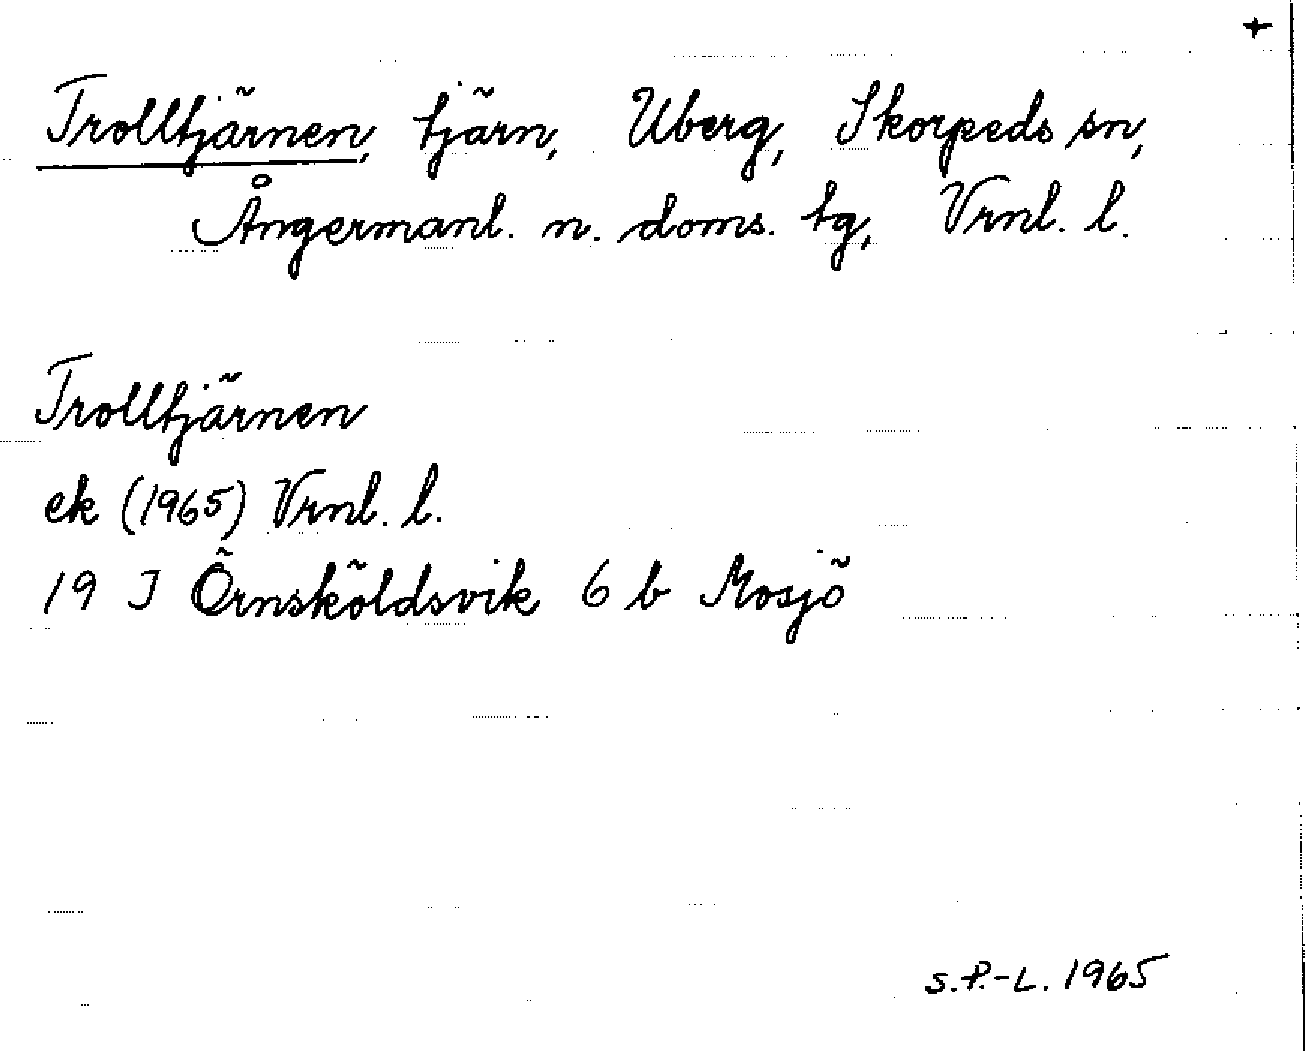 Trolltjärnen, tjärn, Uberg, Skorpeds sn,
Ångermanl. n. doms. tg, Vrnl. l.
Trolltjärnen
ek (1965) Vrnl. l.
19 J Örnsköldsvik 6 b Mosjö
S.P.-L. 1965